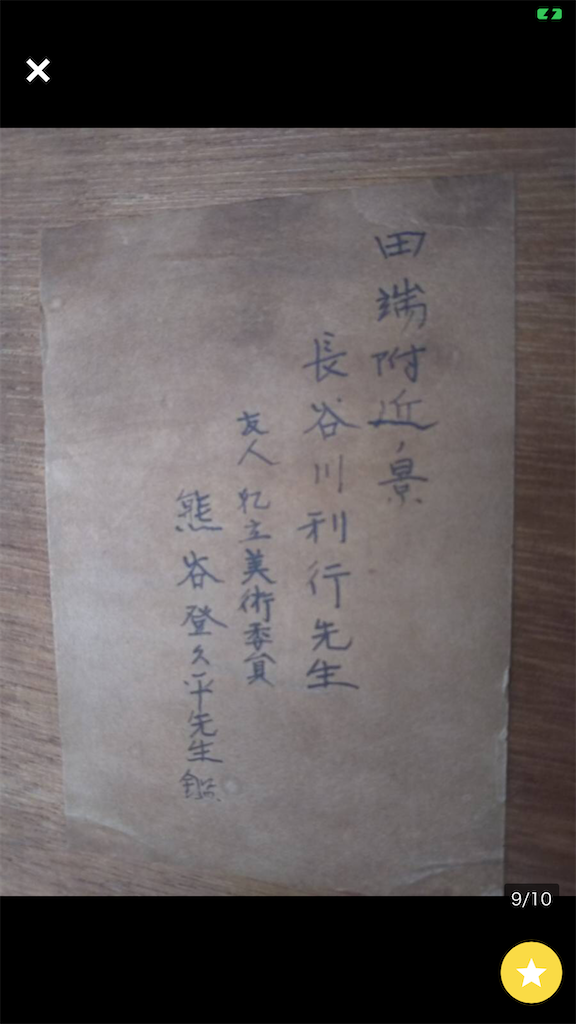 田端附近ノ景
長谷川利行先生
友人 独立美術委員
熊谷登久平先生鑑
9/10